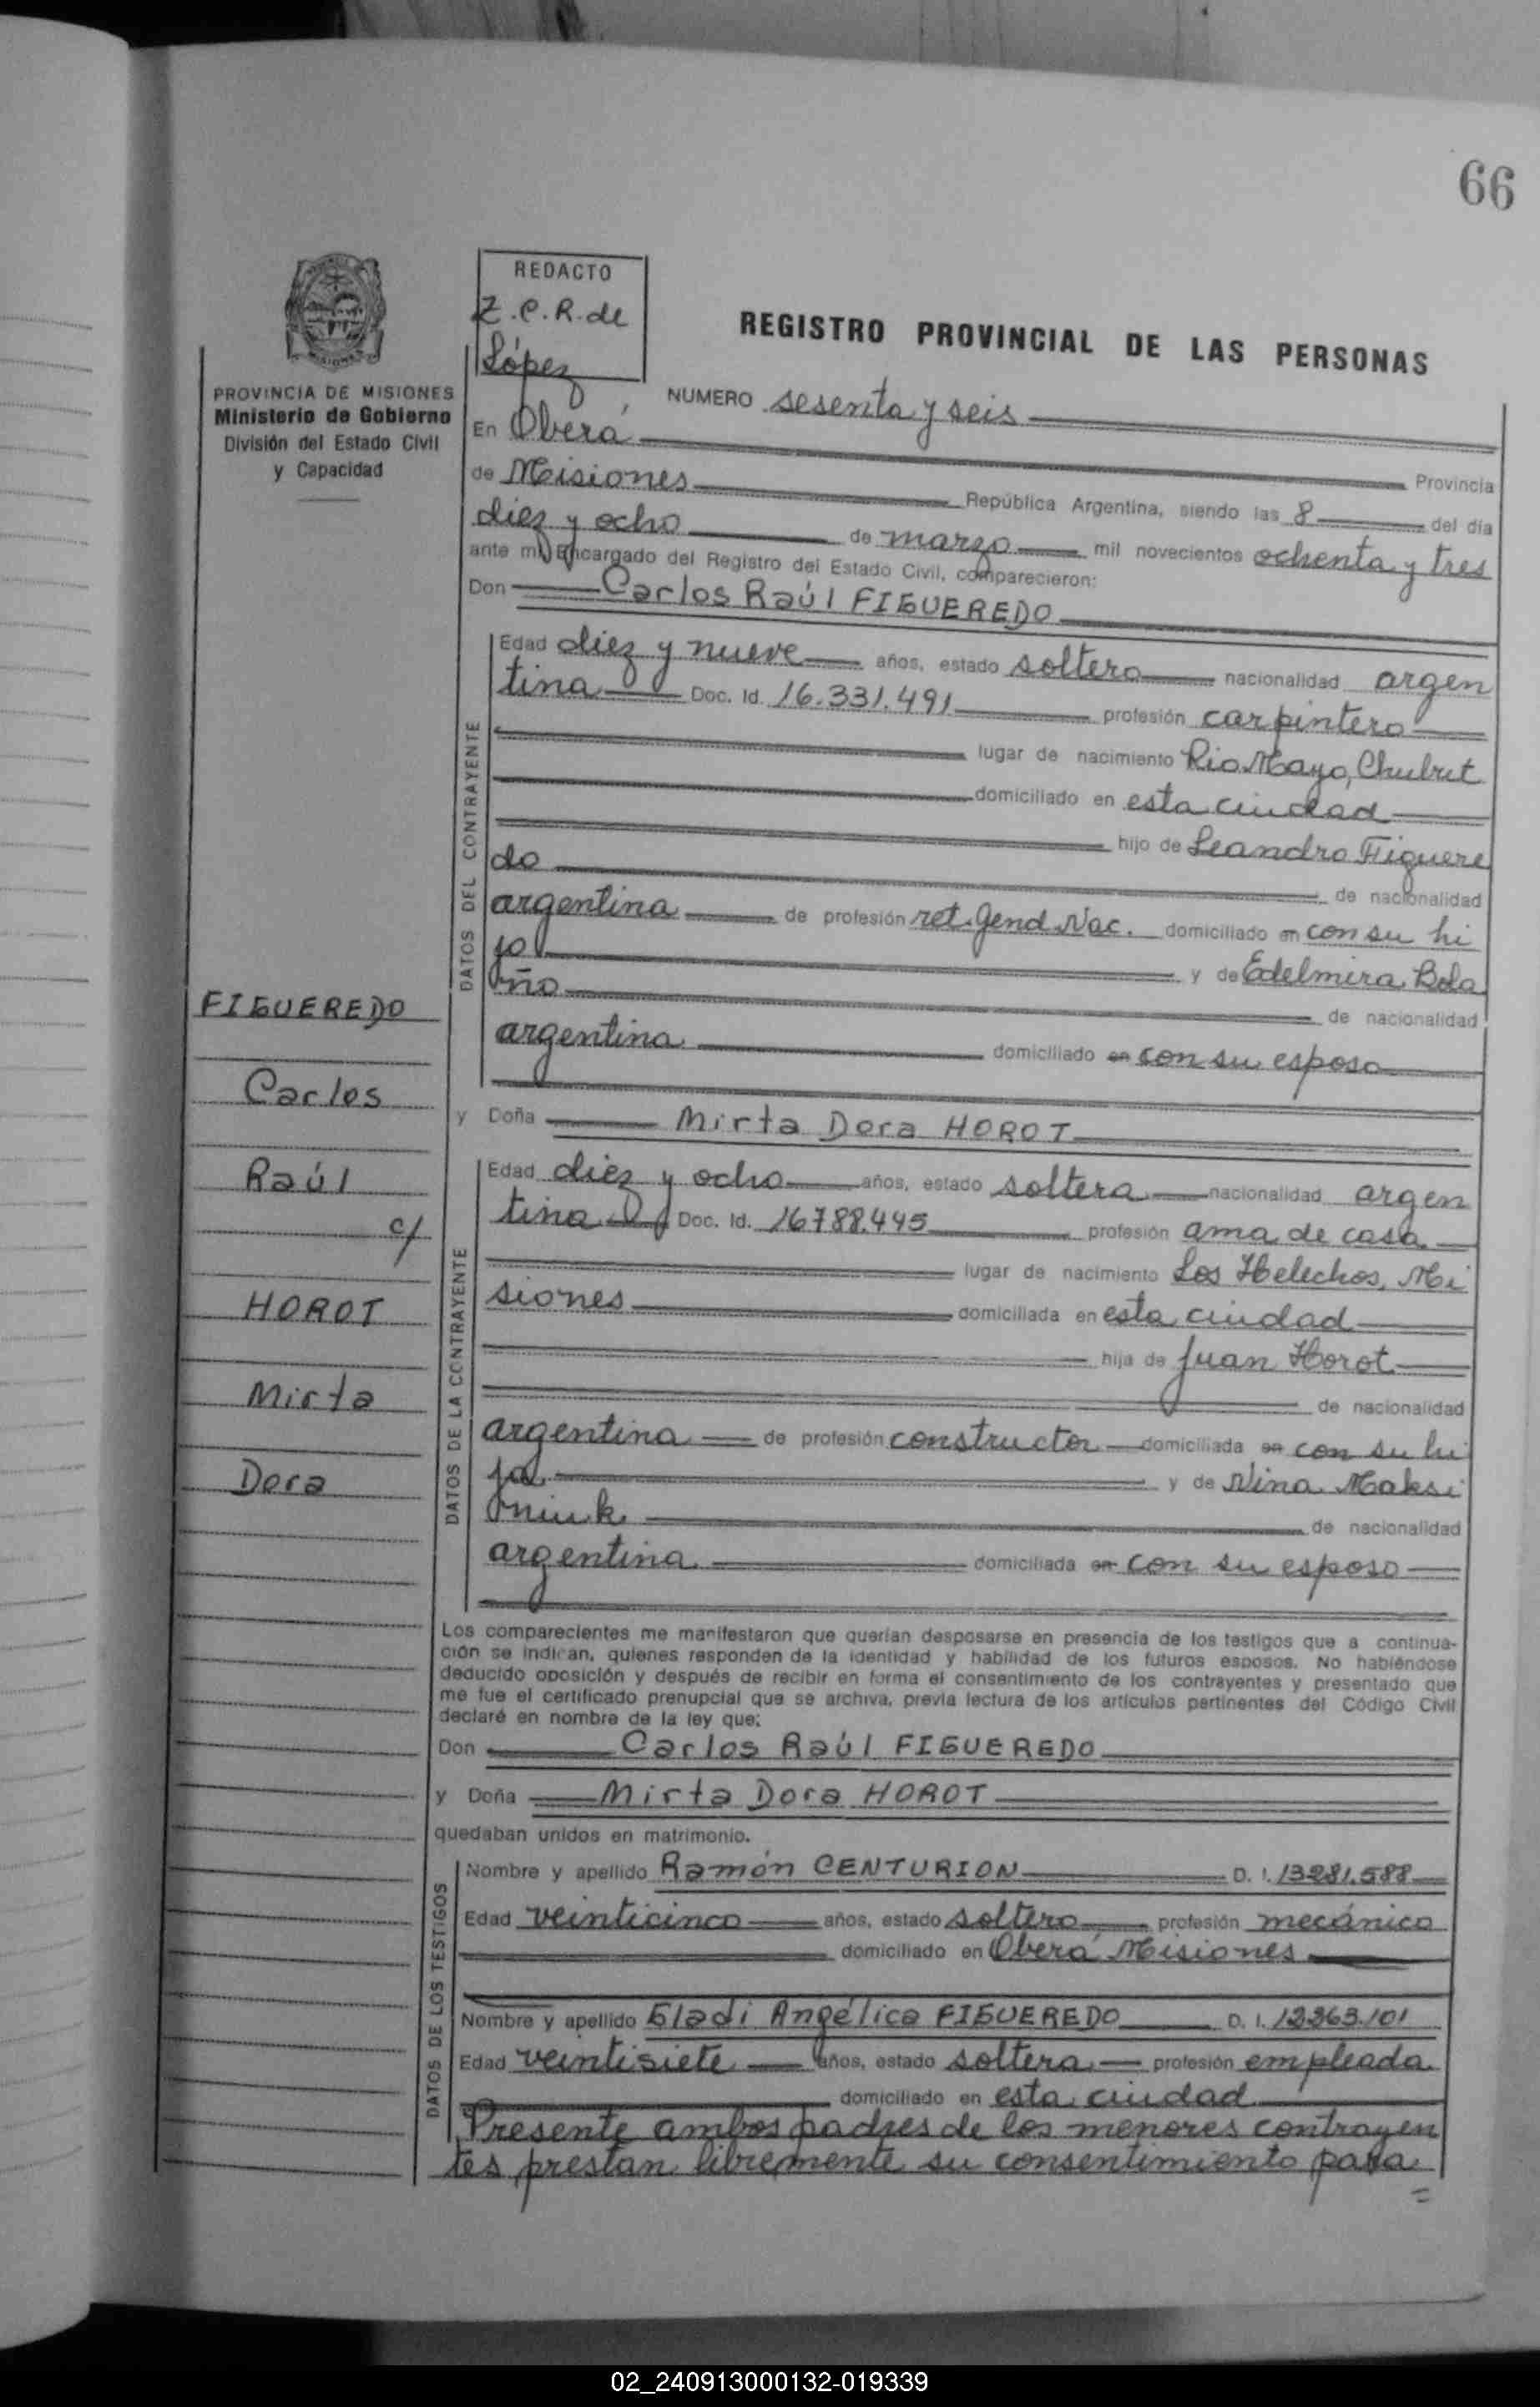 66
REDACTO
Z.C.R. de
López
REGISTRO PROVINCIAL DE LAS PERSONAS
PROVINCIA DE MISIONES
Ministerio de Gobierno
División del Estado Civil
y Capacidad
NUMERO sesenta y seis
En Oberá Provincia
de Misiones República Argentina, siendo las 8 del día
diez y ocho de marzo mil novecientos ochenta y tres
ante mí, Encargado del Registro del Estado Civil, comparecieron:
Don Carlos Raúl FIGUEREDO
DATOS DEL CONTRAYENTE
Edad diez y nueve años, estado soltero nacionalidad argen
tina Doc. Id. 16.331.491 profesión carpintero
lugar de nacimiento Rio Mayo, Chubut
domiciliado en esta ciudad
hijo de Leandro Figuere
do de nacionalidad
argentina de profesión ret. Gend. Nac. domiciliado en con su hi
jo y de Edelmira Bola
ño de nacionalidad
argentina domiciliado en con su esposo
y Doña Mirta Dora HOROT
DATOS DE LA CONTRAYENTE
Edad diez y ocho años, estado soltera nacionalidad argen
tina Doc. Id. 16788.445 profesión ama de casa
lugar de nacimiento Los Helechos, Mi
siones domiciliada en esta ciudad
hija de Juan Horot
de nacionalidad
argentina de profesión constructor domiciliada en con su hi
ja y de Nina Maksi
miuk de nacionalidad
argentina domiciliada en con su esposo
Los comparecientes me manifestaron que querían desposarse en presencia de los testigos que a continua-
ción se indican, quienes responden de la identidad y habilidad de los futuros esposos. No habiéndose
deducido oposición y después de recibir en forma el consentimiento de los contrayentes y presentado que
me fue el certificado prenupcial que se archiva, previa lectura de los artículos pertinentes del Código Civil
declaré en nombre de la ley que:
Don Carlos Raúl FIGUEREDO
y Doña Mirta Dora HOROT
quedaban unidos en matrimonio.
DATOS DE LOS TESTIGOS
Nombre y apellido Ramón CENTURION D. I. 13281.588
Edad veinticinco años, estado soltero profesión mecánico
domiciliado en Oberá Misiones
Nombre y apellido Gladi Angélica FIGUEREDO D. I. 12363.101
Edad veintisiete años, estado soltera profesión empleada
domiciliado en esta ciudad
Presente ambos padres de los menores contrayen
tes prestan libremente su consentimiento para
=
FIGUEREDO
Carlos
Raúl
c/
HOROT
Mirta
Dora
02_240913000132-019339